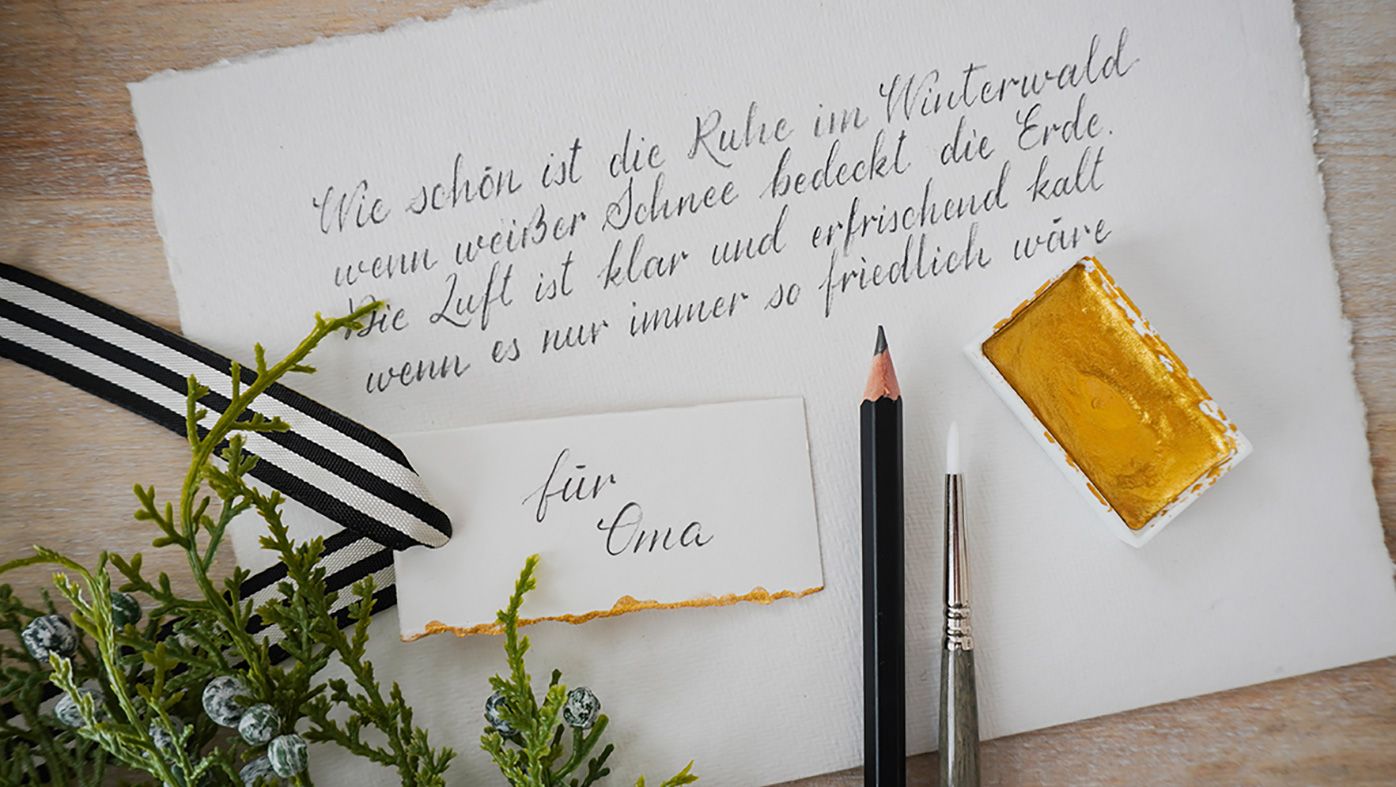 Wie schön ist die Ruhe im Winterwald
wenn weißer Schnee bedeckt die Erde.
Die Luft ist klar und erfrischend kalt
wenn es nur immer so friedlich wäre
für
Oma